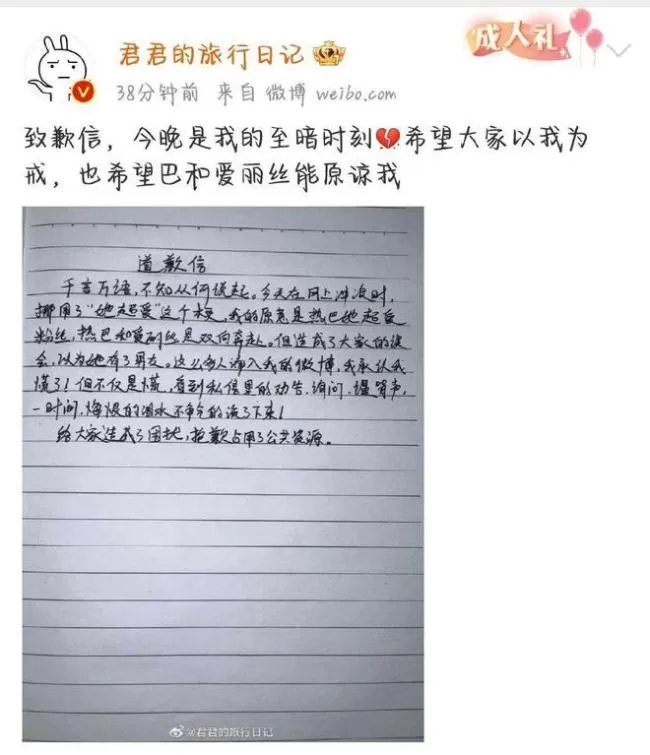 君君的旅行日记
成人礼
38分钟前 来自 微博 weibo.com
致歉信，今晚是我的至暗时刻💔希望大家以我为
戒，也希望巴和爱丽丝能原谅我
道歉信
千言万语，不知从何说起。今天在网上冲浪时，
挪用了“她超爱”这个梗，我的原意是热巴她超爱
粉丝，热巴和爱丽丝是双向奔赴。但造成了大家的误
会，以为她有了男友。这么多人涌入我的微博，我承认我
慌了！但不仅是慌，看到私信里的劝告、询问、谴责声，
一时间，悔恨的泪水不争气的流了下来！
给大家造成了困扰，抱歉占用了公共资源。
@君君的旅行日记